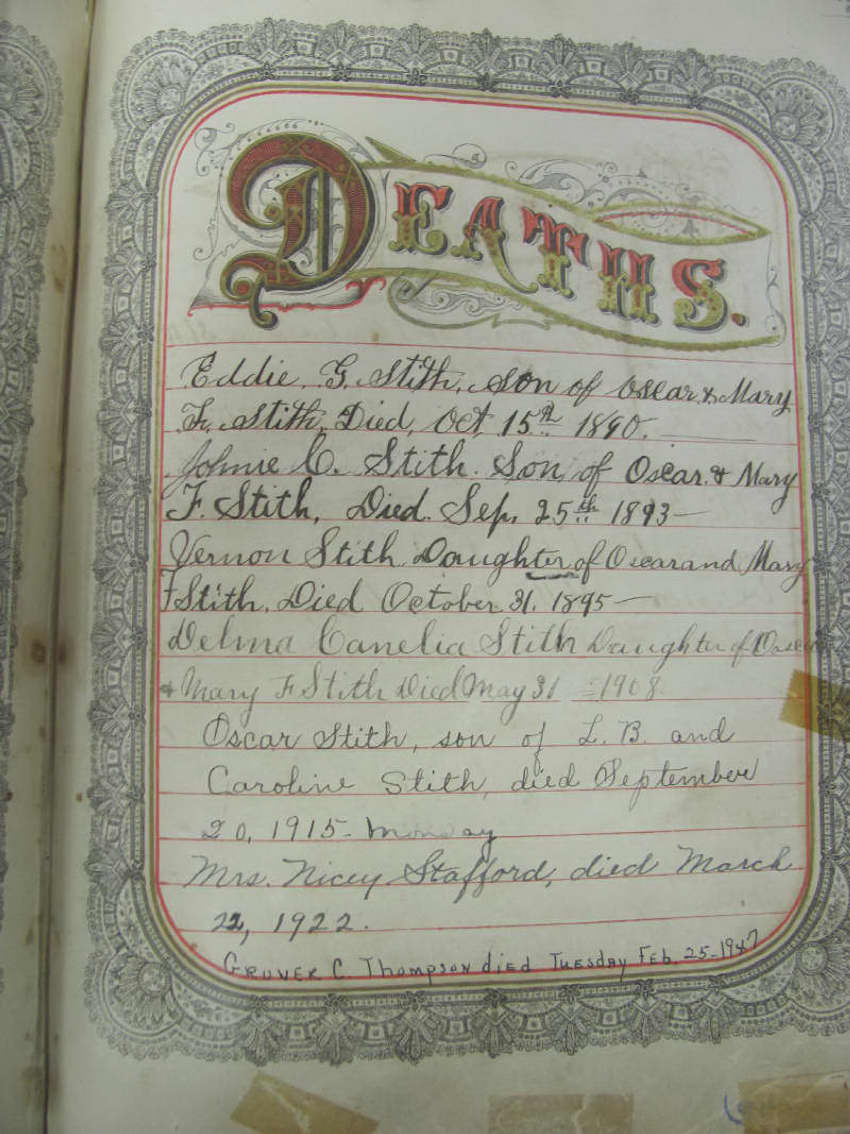 DEATHS.
Eddie. G. Stith, Son of Oscar & Mary
F. Stith, Died, Oct 15th 1890.
Johnie C. Stith. Son, of Oscar. & Mary
F. Stith, Died. Sep. 25th 1893—
Vernon Stith Daughter of Oscar and Mary
F Stith. Died October 31. 1895—
Delma Canelia Stith Daughter of Oscar
& Mary F Stith Died May 31 1908.
Oscar Stith, son of L. B. and
Caroline Stith, died September
20, 1915- Monday
Mrs. Nicey Stafford, died March
22, 1922.
GRUVER C Thompson died TUESDAY FEB. 25-1947